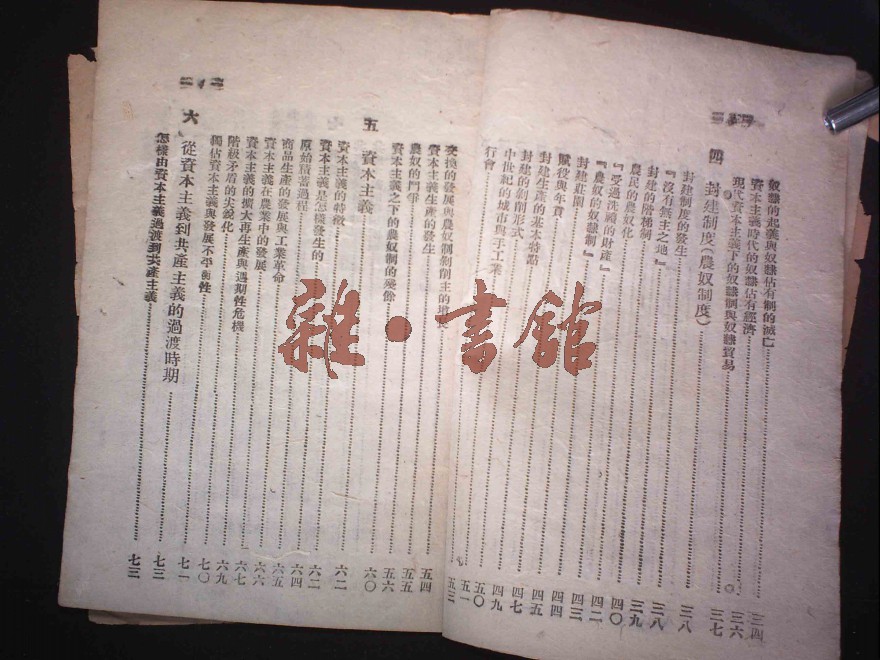 奴隸的起義與奴隸佔有制的滅亡……三四
資本主義時代的奴隸佔有經濟……三六
現代資本主義下的奴隸制與奴隸貿易……三七
四 封建制度(農奴制度)……三八
封建制度的發生……三八
『沒有無主之地』……三九
封建的階梯制……四〇
農民的農奴化……四二
『受過洗禮的財產』……四三
『農奴的奴隸制』……四四
封建莊園……四五
賦役與年貢……四七
封建生產的基本特點……四九
封建的剝削形式……五〇
中世紀的城市與手工業……五一
行會……五三
交換的發展與農奴制剝削主的增長……五四
資本主義生產的發生……五五
農奴的鬥爭……五六
資本主義之下的農奴制的殘餘……六〇
五 資本主義……六二
資本主義的特徵……六二
資本主義是怎樣發生的……六四
原始積蓄過程……六五
商品生產的發展與工業革命……六六
資本主義在農業中的發展……六七
資本主義的擴大再生產與週期性危機……六九
階級矛盾的尖銳化……七〇
獨佔資本主義與發展不平衡性……七一
六 從資本主義到共產主義的過渡時期……七三
怎樣由資本主義過渡到共產主義……七三
雜·書館